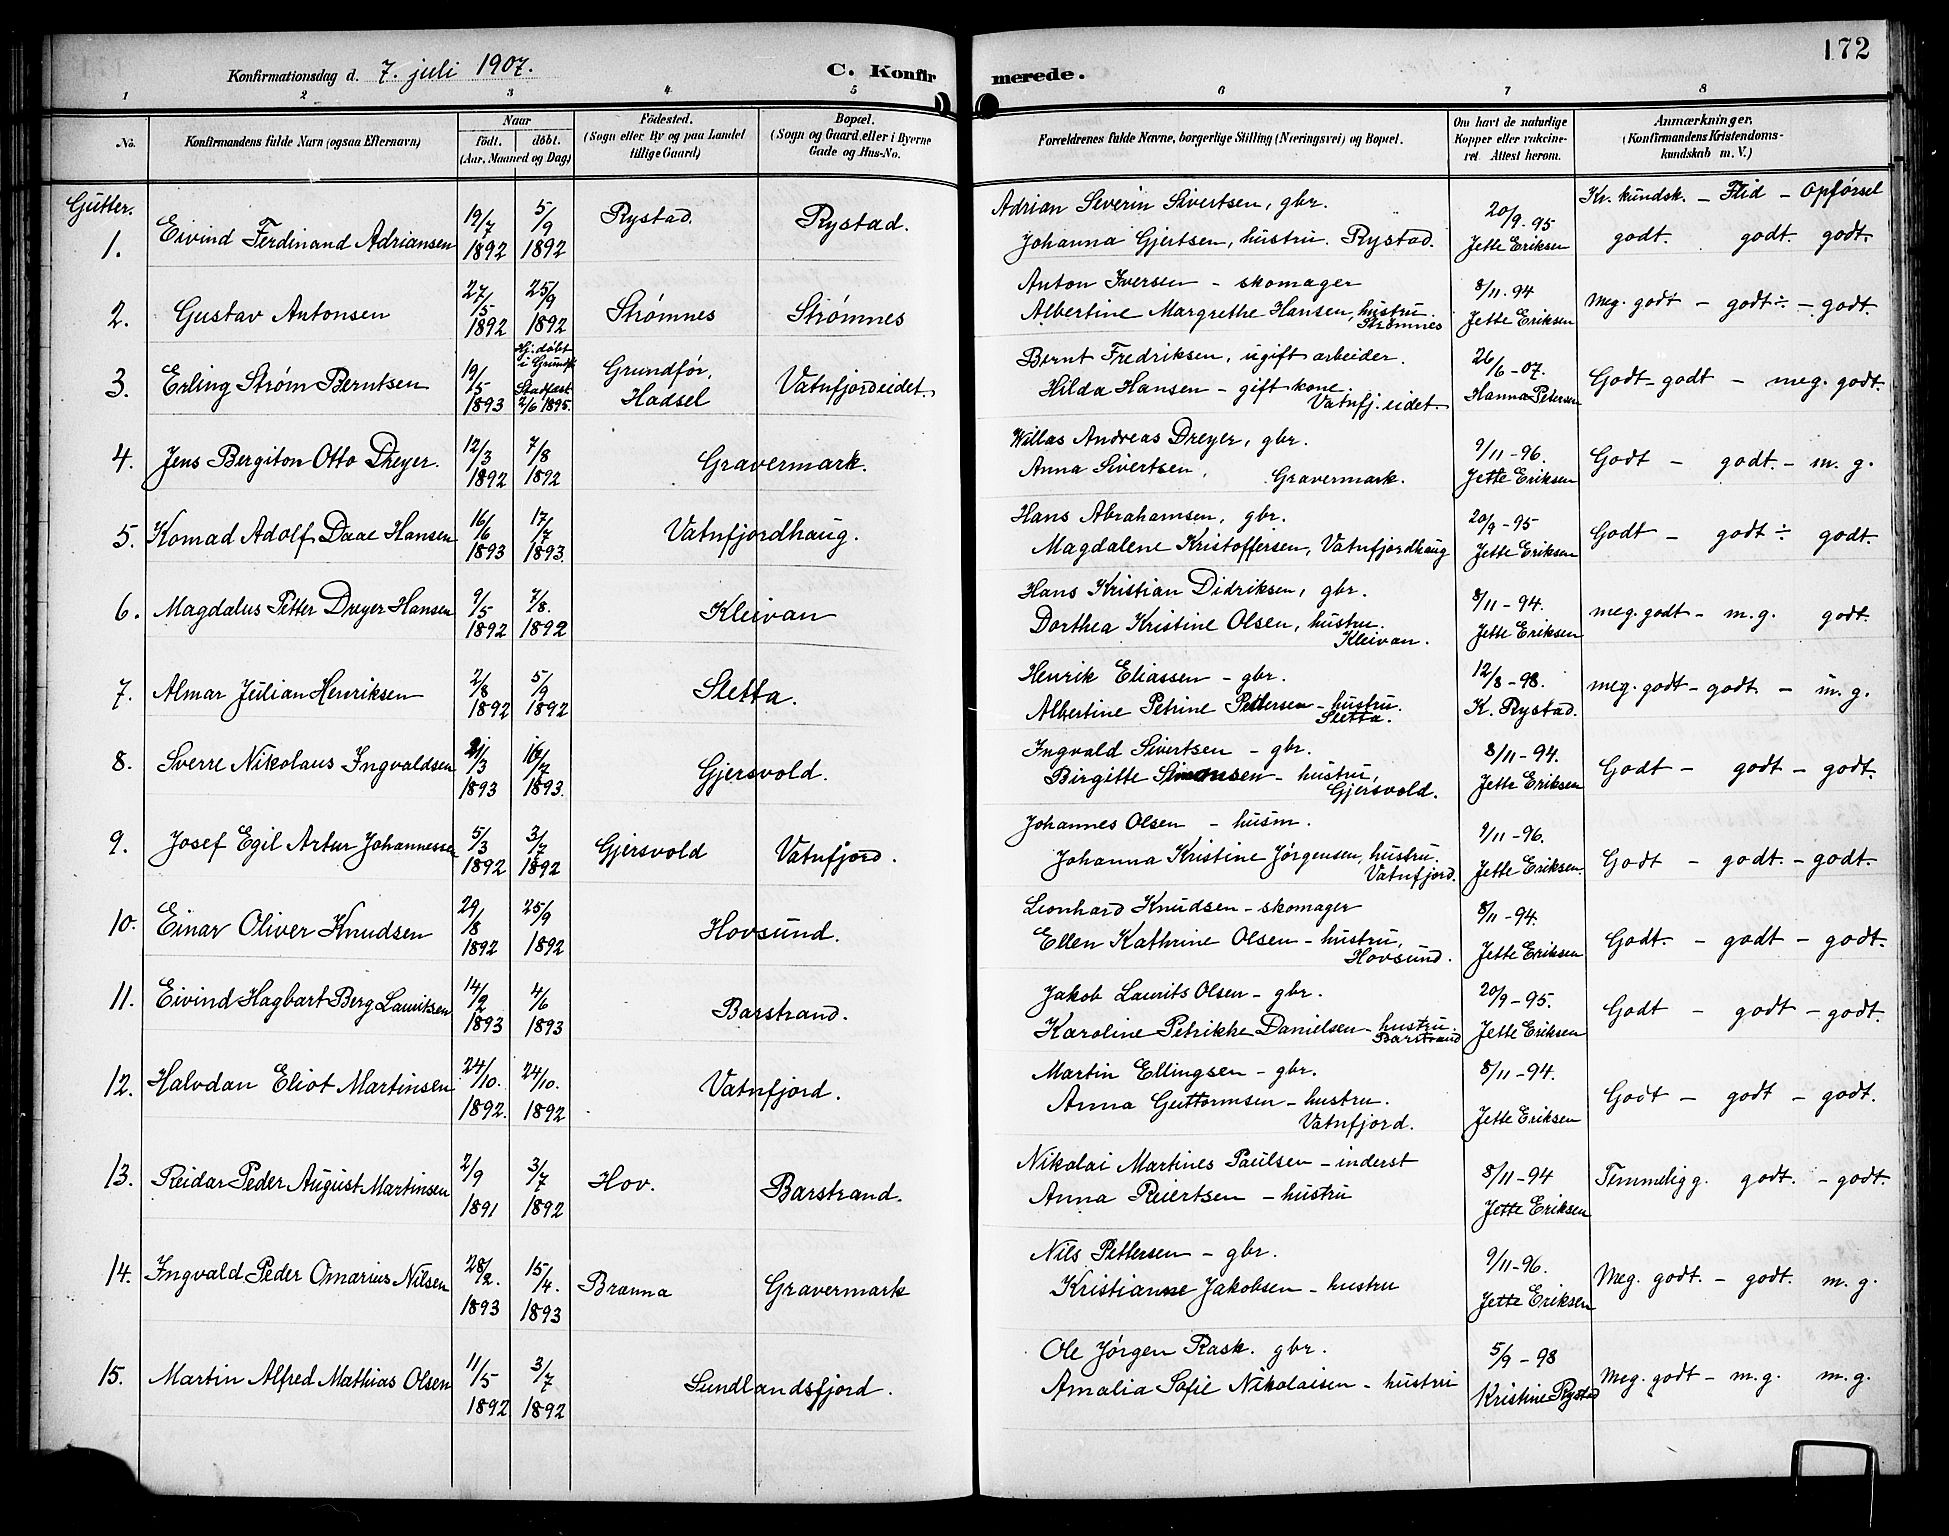 172
Konfirmationsdag d. 7. juli 1907.
C. Konfirmerede.
1 2 3 4 5 6 7 8
No.
Konfirmandens fulde Navn (ogsaa Efternavn)
Naar
født. døbt.
(Aar, Maaned og Dag)
Fødested.
(Sogn eller By og paa Landet
tillige Gaard)
Bopæl.
(Sogn og Gaard eller i Byerne
Gade og Hus-No.
Forældrenes fulde Navne, borgerlige Stilling (Næringsvei) og Bopæl.
Om havt de naturlige
Kopper eller vakcine-
ret Attest herom.
Anmærkninger.
(Konfirmandens Kristendoms-
kundskab m. V.)
Gutter.
Kr. kundsk. – Flid – Opførsel
1. Eivind Ferdinand Adriansen 19/7 1892 5/9 1892 Rystad. Rystad.
Adrian Severin Sivertsen, gbr.
Johanna Gjertsen, hustru. Rystad.
20/9. 95 Jette Eriksen
godt. godt. godt.
2. Gustav Antonsen 27/5 1892 25/9 1892 Strømnes Strømnes
Anton Iversen – skomager
Albertine Margrethe Hansen, hustru.
Strømnes
8/11. 94 Jette Eriksen
Meg. godt – godt ÷ – godt.
3. Erling Strøm Berntsen 19/5 1893 Hj. døbt
i Grundf.
Stadfæst
2/6 1895. Grundfør,
Hadsel Vatnfjordeidet.
Bernt Fredriksen, ugift arbeider.
Hilda Hansen – gift kone
Vatnfj. eidet.
26/6 – 07. Hanna Petersen
Godt – godt – meg. godt.
4. Jens Bergiton Otto Dreyer. 12/3 1892 7/8 1892 Gravermark.
Willas Andreas Dreyer, gbr.
Anna Sivertsen, Gravermark.
9/11 – 96. Jette Eriksen
Godt – godt. – m. g.
5. Konrad Adolf Daae Hansen 16/6 1893 17/7 1893. Vatnfjordhaug.
Hans Abrahamsen, gbr.
Magdalene Kristoffersen, Vatnfjordhaug
20/9 – 95 Jette Eriksen
Godt – godt ÷ godt.
6. Magdalus Petter Dreyer Hansen 9/5 1892 7/8. 1892 Kleivan
Hans Kristian Didriksen, gbr.
Dorthea Kristine Olsen, hustru.
Kleivan.
8/11 – 94. Jette Eriksen
meg. godt – m. g. godt.
7. Almar Julian Henriksen 2/8 1892 5/9 1892 Sletta.
Henrik Eliassen – gbr.
Albertine Petrine Pettersen – hustru.
Sletta.
12/8 – 98. K. Rystad.
meg. godt – godt – m. g.
8. Sverre Nikolaus Ingvaldsen /3 1893 16/7 1893. Gjersvold.
Ingvald Sivertsen – gbr.
Birgitte Simonsen – hustru,
Gjersvold.
8/11 – 94. Jette Eriksen
Godt – godt – godt.
9. Josef Egil Artur Johannessen 5/3 1892 3/7 1892 Gjersvold Vatnfjord.
Johannes Olsen – husm.
Johanna Kristine Jørgensen, hustru.
Vatnfjord.
9/11 – 96. Jette Eriksen.
Godt – godt. – godt.
10. Einar Oliver Knudsen 29/8 1892 25/9 1892 Hovsund.
Leonhard Knudsen – skomager
Ellen Kathrine Olsen – hustru,
Hovsund.
8/11 – 94. Jette Eriksen
Godt. – godt – godt.
11. Eivind Hagbart Berg Lauritsen 14/2 1893 4/6 1893 Barstrand.
Jakob Laurits Olsen – gbr.
Karoline Petrikke Danielsen – hustru.
Barstrand
20/9 – 95. Jette Eriksen
Godt – godt – godt.
12. Halvdan Eliot Martinsen 24/10. 1892. 24/10. 1892 Vatnfjord.
Martin Ellingsen – gbr.
Anna Guttormsen – hustru.
Vatnfjord.
8/11 – 94. Jette Eriksen
Godt – godt – godt.
13. Reidar Peder August Martinsen 2/9 1891 3/7 1892 Hov. Barstrand.
Nikolai Martines Paulsen – inderst
Anna Reiertsen – hustru
8/11 – 94 Jette Eriksen
Temmelig g. godt. – godt.
14. Ingvald Peder Omarius Nilsen 28/2. 1893 15/4. 1893 Branna Gravermark
Nils Pettersen – gbr.
Kristianne Jakobsen – hustru
9/11 – 96. Jette Eriksen
Meg. godt. – godt. m. g.
15. Martin Alfred Mathias Olsen 11/5 1892 3/7 1892 Sundlandsfjord.
Ole Jørgen Rask. gbr.
Amalia Sofie Nikolaisen – hustru
5/9 – 98 Kristine Rystad
Meg. godt – m. g. m. g.